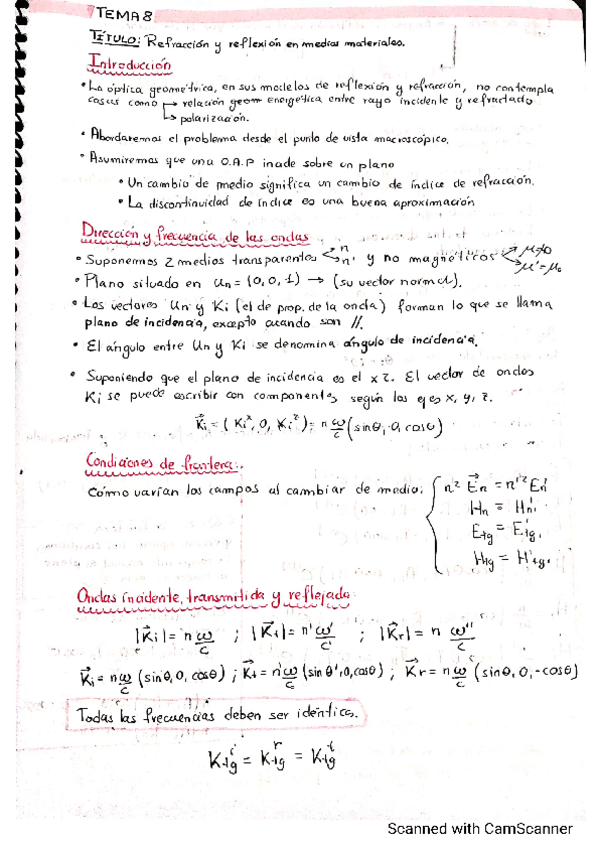 TEMA 8
TÍTULO: Refracción y reflexión en medios materiales.
Introducción
• La óptica geométrica, en sus modelos de reflexión y refracción, no contempla
casos como → relación geom energética entre rayo incidente y refractado
→ polarización.
• Abordaremos el problema desde el punto de vista macroscópico.
• Asumiremos que una O.A.P incide sobre un plano
• Un cambio de medio significa un cambio de índice de refracción.
• La discontinuidad de índice es una buena aproximación
Dirección y frecuencia de las ondas
• Suponemos 2 medios transparentes n n' y no magnéticos μ=μ0 μ'=μ0
• Plano situado en Un = (0,0,1) → (su vector normal).
• Los vectores Un y Ki (el de prop. de la onda) forman lo que se llama
plano de incidencia, excepto cuando son //.
• El ángulo entre Un y Ki se denomina ángulo de incidencia.
• Suponiendo que el plano de incidencia es el xz. El vector de ondas
Ki se puede escribir con componentes según los ejes x, y, z.
K⃗i = (Ki^x, 0, Ki^z) = n ω/c (sinθ, 0, cosθ)
Condiciones de frontera:
Cómo varían los campos al cambiar de medio: { n² E⃗n = n'² E'n
Hn = H'n
Etg = E'tg
Htg = H'tg
Ondas incidente, transmitida y reflejada
|K⃗i| = n ω/c ; |K⃗t| = n' ω'/c ; |K⃗r| = n ω''/c
K⃗i = n ω/c (sinθ, 0, cosθ) ; K⃗t = n' ω/c (sin θ', 0, cosθ) ; K⃗r = n ω/c (sinθ, 0, -cosθ)
Todas las frecuencias deben ser idéntica.
Ktg^i = Ktg^r = Ktg^t
Scanned with CamScanner